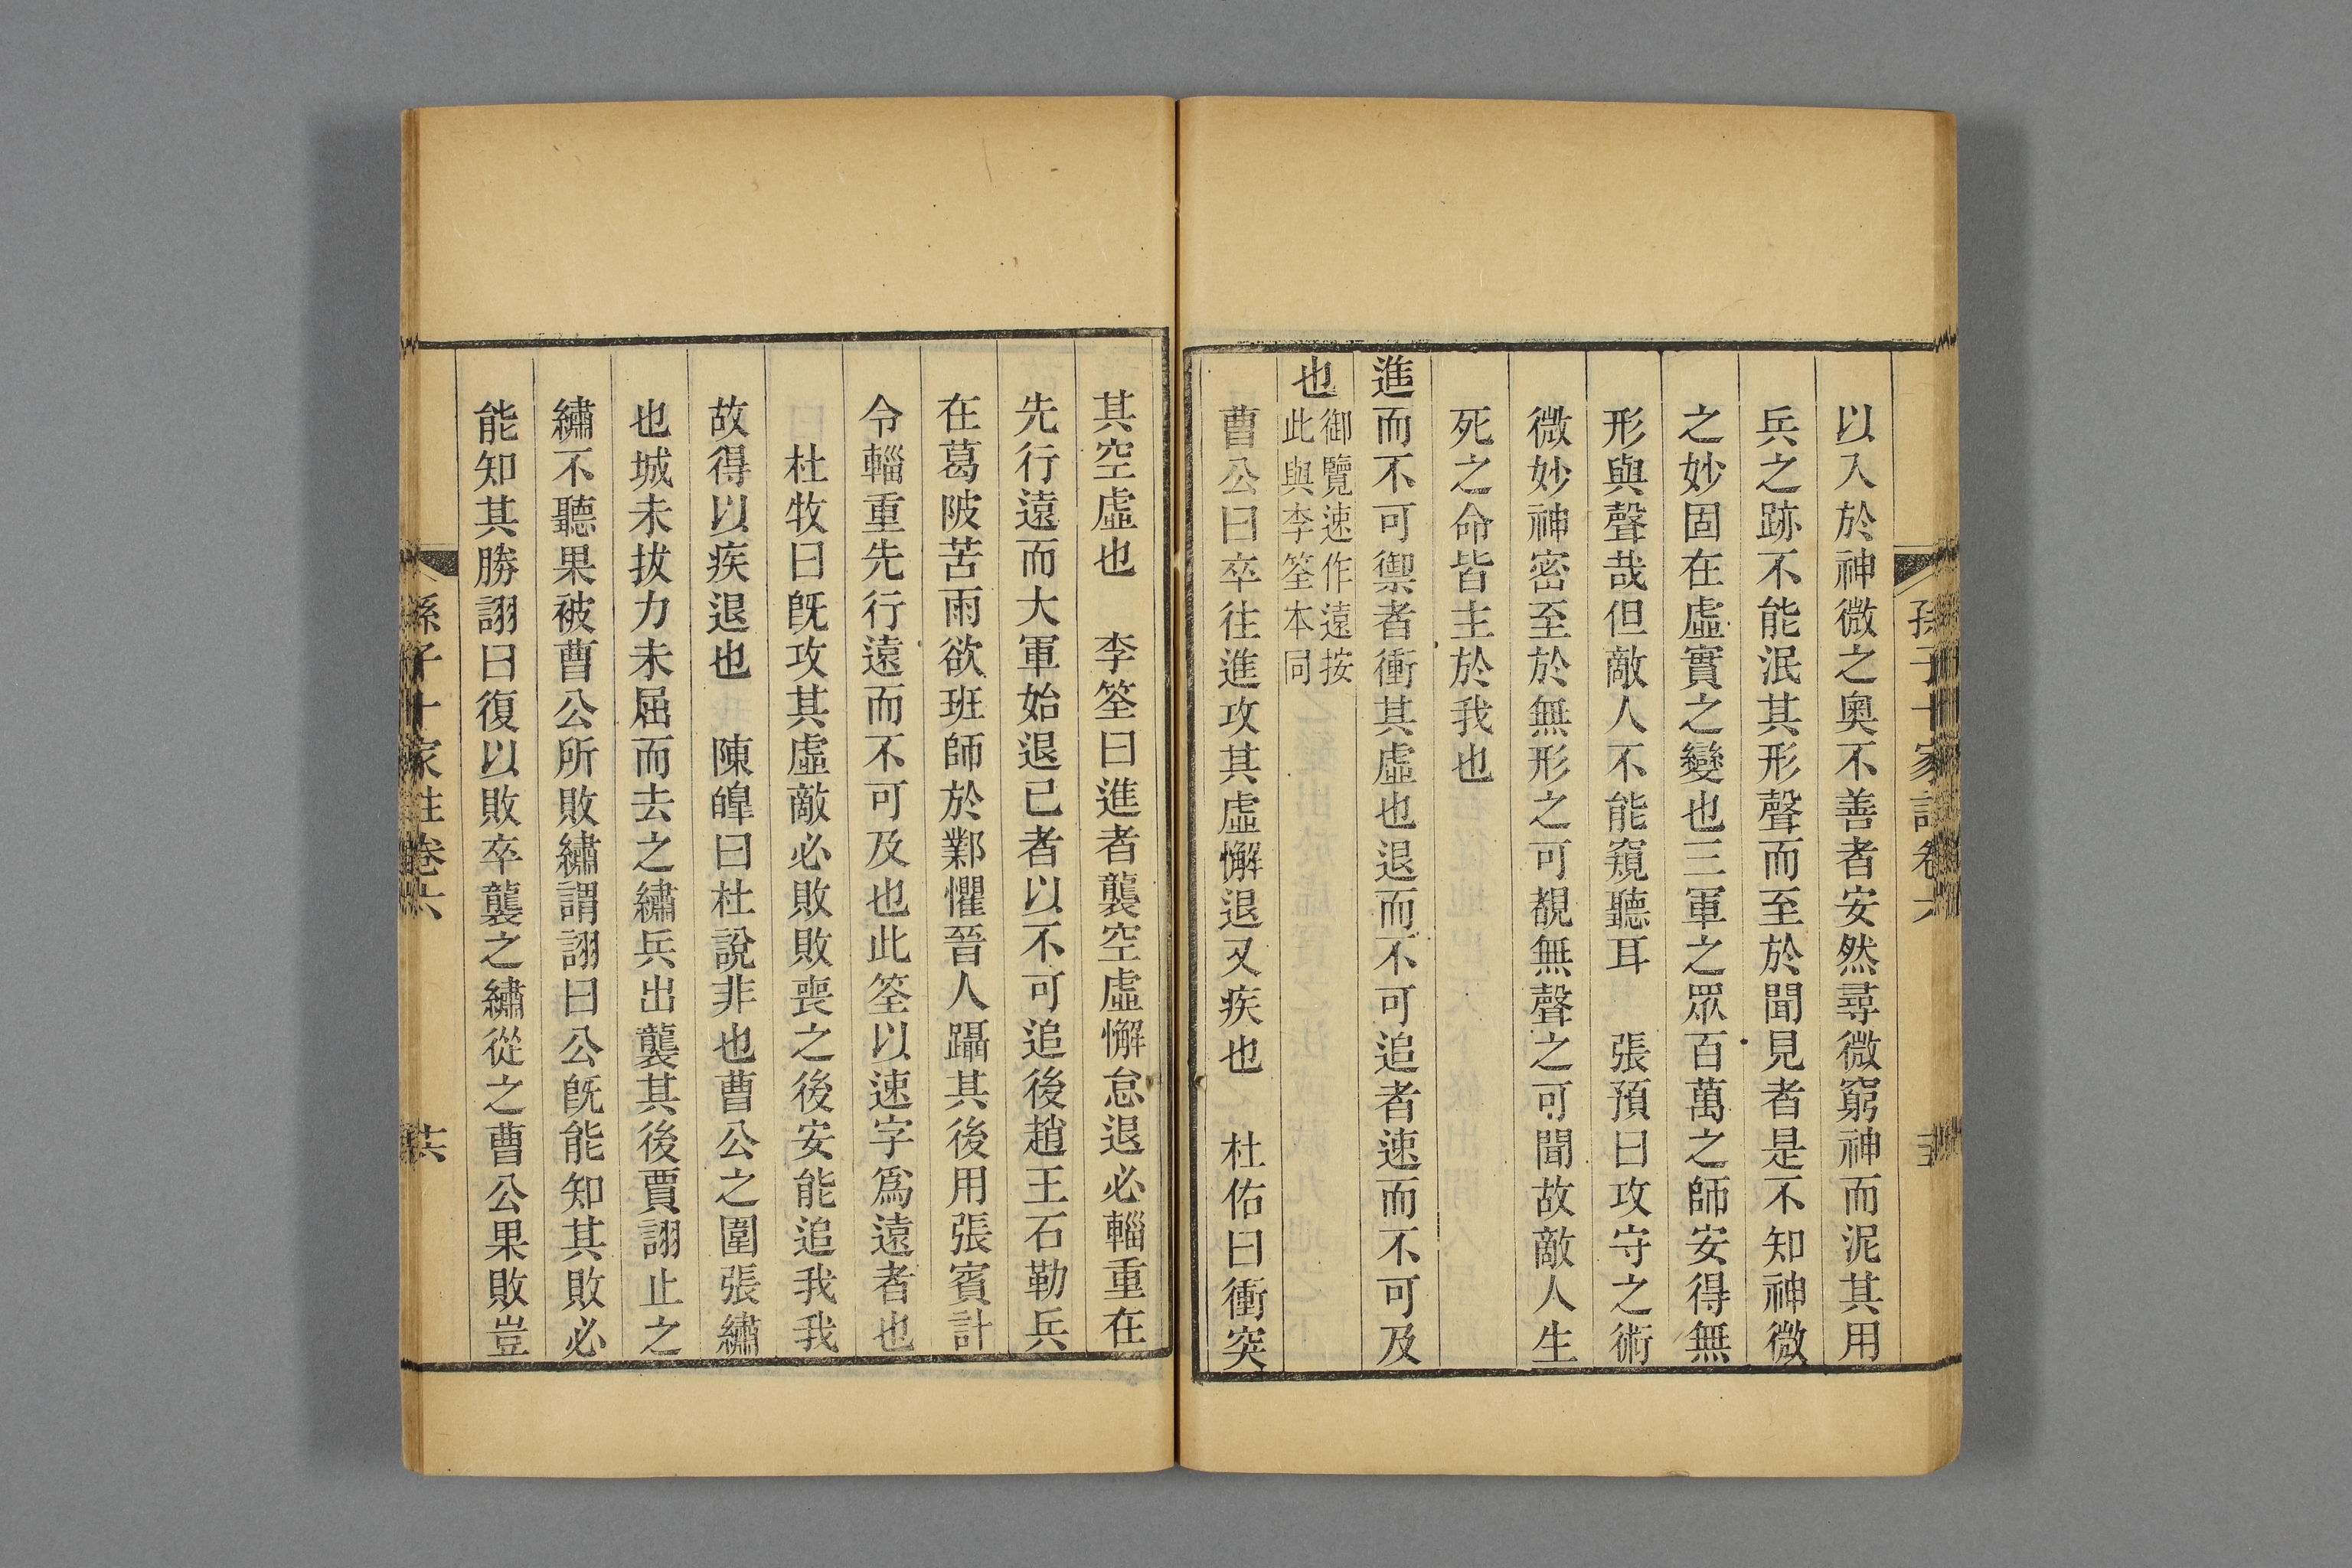 孫子十家註卷六
以入於神微之奧不善者安然尋微窮神而泥其用
兵之跡不能泯其形聲而至於聞見者是不知神微
之妙固在虛實之變也三軍之眾百萬之師安得無
形與聲哉但敵人不能窺聽耳　張預曰攻守之術
微妙神密至於無形之可覩無聲之可聞故敵人生
死之命皆主於我也
進而不可禦者衝其虛也退而不可追者速而不可及
也御覽速作遠按
此與李筌本同
曹公曰卒往進攻其虛懈退又疾也　杜佑曰衝突
其空虛也　李筌曰進者襲空虛懈怠退必輜重在
先行遠而大軍始退已者以不可追後趙王石勒兵
在葛陂苦雨欲班師於鄴懼晉人躡其後用張賓計
令輜重先行遠而不可及也此筌以速字爲遠者也
杜牧曰旣攻其虛敵必敗敗喪之後安能追我我
故得以疾退也　陳皥曰杜說非也曹公之圍張繡
也城未拔力未屈而去之繡兵出襲其後賈詡止之
繡不聽果被曹公所敗繡謂詡曰公旣能知其敗必
能知其勝詡曰復以敗卒襲之繡從之曹公果敗豈
孫子十家註卷六